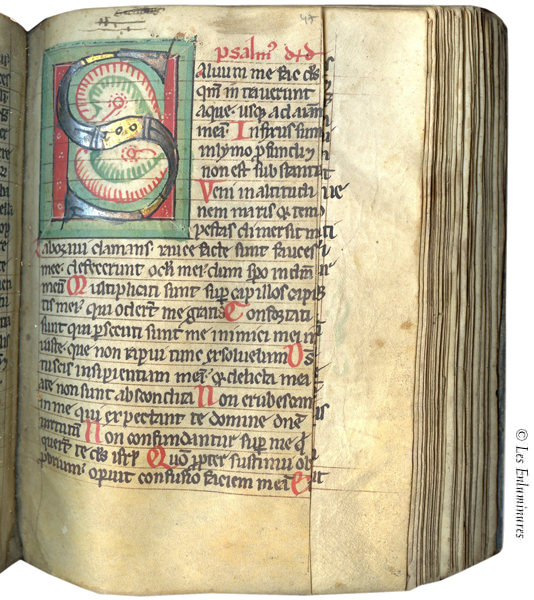 psalm⁹ dd
S
aluum me fac ds̄
qm̄ intrauerunt
aque. usq̨ ad aīam
meā. Infixus sum
in lymo p̄fundi ⁊
non est substantia
Veni in altitudi
nem maris ⁊ temp
pestas dimersit m
Laboraui clamans. rauce facte sunt fauces
mee. defecerunt ocl̄i mei. dum spo in dm̄
meū Multiplicati sunt sup̄ capillos capi
tis mei. qui oderт̄ me gratis Confortati
sunt qui p̄secuti sunt me inimici mei in
iuste. que non rapui tunc exsoluebam Ds̄
tu scis insipientiam meā. ⁊ delicta mea
a te non sunt abscondita Non erubescant
in me qui expectant te domine dn̄e
uirtutū Non confundantur sup̄ me q̄
querт̄ te ds̄ isrl̄. Quō ꝓpter te sustinui ob
ꝓbrium. opuit confusio faciem meā
© Les Enluminures